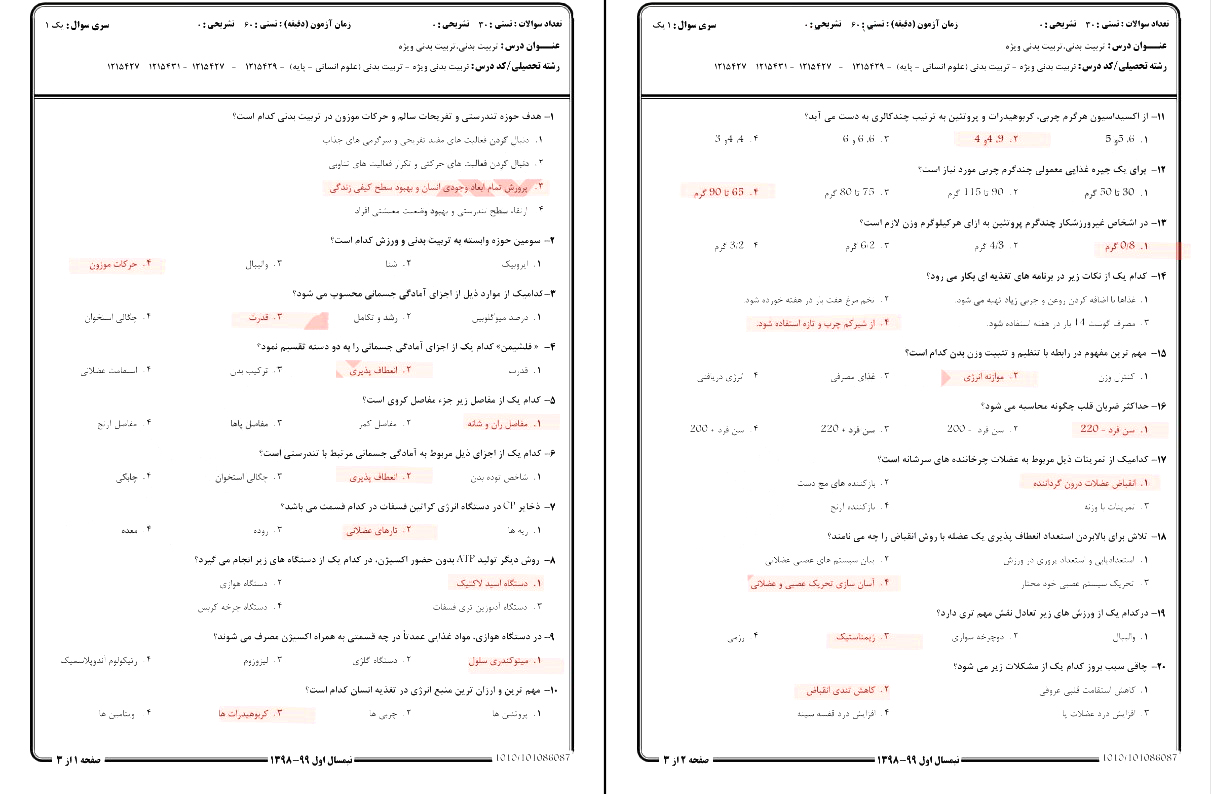 تعداد سوالات : تستی : ۳۰ تشریحی : ۰ زمان آزمون (دقیقه) : تستی : ۶۰ تشریحی : ۰ سری سوال : یک ۱
عنـــوان درس : تربیت بدنی،تربیت بدنی ویژه
رشته تحصیلی/کد درس : تربیت بدنی ویژه - تربیت بدنی (علوم انسانی - پایه) ۱۲۱۵۴۲۹ - - ۱۲۱۵۴۲۷ - ۱۲۱۵۴۳۱ ۱۲۱۵۴۲۷
۱- هدف حوزه تندرستی و تفریحات سالم و حرکات موزون در تربیت بدنی کدام است؟
۱. دنبال کردن فعالیت های مفید تفریحی و سرگرمی های جذاب
۲. دنبال کردن فعالیت های حرکتی و تکرار فعالیت های تناوبی
۳. پرورش تمام ابعاد وجودی انسان و بهبود سطح کیفی زندگی
۴. ارتقاء سطح تندرستی و بهبود وضعیت معیشتی افراد
۲- سومین حوزه وابسته به تربیت بدنی و ورزش کدام است؟
۱. ایروبیک ۲. شنا ۳. والیبال ۴. حرکات موزون
۳- کدامیک از موارد ذیل از اجزای آمادگی جسمانی محسوب می شود؟
۱. درصد میوگلوبین ۲. رشد و تکامل ۳. قدرت ۴. چگالی استخوان
۴- « فلشیمن» کدام یک از اجزای آمادگی جسمانی را به دو دسته تقسیم نمود؟
۱. قدرت ۲. انعطاف پذیری ۳. ترکیب بدن ۴. استقامت عضلانی
۵- کدام یک از مفاصل زیر جزء مفاصل کروی است؟
۱. مفاصل ران و شانه ۲. مفاصل کمر ۳. مفاصل پاها ۴. مفاصل آرنج
۶- کدام یک از اجزای ذیل مربوط به آمادگی جسمانی مرتبط با تندرستی است؟
۱. شاخص توده بدن ۲. انعطاف پذیری ۳. چگالی استخوان ۴. چابکی
۷- ذخایر CP در دستگاه انرژی کراتین فسفات در کدام قسمت می باشد؟
۱. ریه ها ۲. تارهای عضلانی ۳. روده ۴. معده
۸- روش دیگر تولید ATP بدون حضور اکسیژن، در کدام یک از دستگاه های زیر انجام می گیرد؟
۱. دستگاه اسید لاکتیک ۲. دستگاه هوازی
۳. دستگاه آدنوزین تری فسفات ۴. دستگاه چرخه کربس
۹- در دستگاه هوازی، مواد غذایی عمدتاً در چه قسمتی به همراه اکسیژن مصرف می شوند؟
۱. میتوکندری سلول ۲. دستگاه گلژی ۳. لیزوزوم ۴. رتیکولوم آندوپلاسمیک
۱۰- مهم ترین و ارزان ترین منبع انرژی در تغذیه انسان کدام است؟
۱. پروتئین ها ۲. چربی ها ۳. کربوهیدرات ها ۴. ویتامین ها
1010/101086087 نیمسال اول ۹۹-۱۳۹۸ صفحه ۱ از ۳
تعداد سوالات : تستی : ۳۰ تشریحی : ۰ زمان آزمون (دقیقه) : تستی : ۶۰ تشریحی : ۰ سری سوال : ۱ یک
عنـــوان درس : تربیت بدنی،تربیت بدنی ویژه
رشته تحصیلی/کد درس : تربیت بدنی ویژه - تربیت بدنی (علوم انسانی - پایه) ۱۲۱۵۴۲۹ - - ۱۲۱۵۴۲۷ - ۱۲۱۵۴۳۱ ۱۲۱۵۴۲۷
۱۱- از اکسیداسیون هرگرم چربی، کربوهیدرات و پروتئین به ترتیب چندکالری به دست می آید؟
۱. 6، 5و 5 ۲. 9، 4و 4 ۳. 6، 6 و 6 ۴. 4، 4و 3
۱۲- برای یک جیره غذایی معمولی چندگرم چربی مورد نیاز است؟
۱. 30 تا 50 گرم ۲. 90 تا 115 گرم ۳. 75 تا 80 گرم ۴. 65 تا 90 گرم
۱۳- در اشخاص غیرورزشکار چندگرم پروتئین به ازای هرکیلوگرم وزن لازم است؟
۱. 0/8 گرم ۲. 4/3 گرم ۳. 6/2 گرم ۴. 3/2 گرم
۱۴- کدام یک از نکات زیر در برنامه های تغذیه ای بکار می رود؟
۱. غذاها با اضافه کردن روغن و چربی زیاد تهیه می شود. ۲. تخم مرغ هفت بار در هفته خورده شود.
۳. مصرف گوشت 14 بار در هفته استفاده شود. ۴. از شیرکم چرب و تازه استفاده شود.
۱۵- مهم ترین مفهوم در رابطه با تنظیم و تثبیت وزن بدن کدام است؟
۱. کنترل وزن ۲. موازنه انرژی ۳. غذای مصرفی ۴. انرژی دریافتی
۱۶- حداکثر ضربان قلب چگونه محاسبه می شود؟
۱. سن فرد - 220 ۲. سن فرد - 200 ۳. سن فرد + 220 ۴. سن فرد + 200
۱۷- کدامیک از تمرینات ذیل مربوط به عضلات چرخاننده های سرشانه است؟
۱. انقباض عضلات درون گرداننده ۲. بازکننده های مچ دست
۳. تمرینات با وزنه ۴. بازکننده آرنج
۱۸- تلاش برای بالابردن استعداد انعطاف پذیری یک عضله با روش انقباض را چه می نامند؟
۱. استعدادیابی و استعداد پروری در ورزش ۲. بیان سیستم های عصبی عضلانی
۳. تحریک سیستم عصبی خود مختار ۴. آسان سازی تحریک عصبی و عضلانی
۱۹- درکدام یک از ورزش های زیر تعادل نقش مهم تری دارد؟
۱. والیبال ۲. دوچرخه سواری ۳. ژیمناستیک ۴. رزمی
۲۰- چاقی سبب بروز کدام یک از مشکلات زیر می شود؟
۱. کاهش استقامت قلبی عروقی ۲. کاهش تندی انقباض
۳. افزایش درد عضلات پا ۴. افزایش درد قفسه سینه
1010/101086087 نیمسال اول ۹۹-۱۳۹۸ صفحه ۲ از ۳